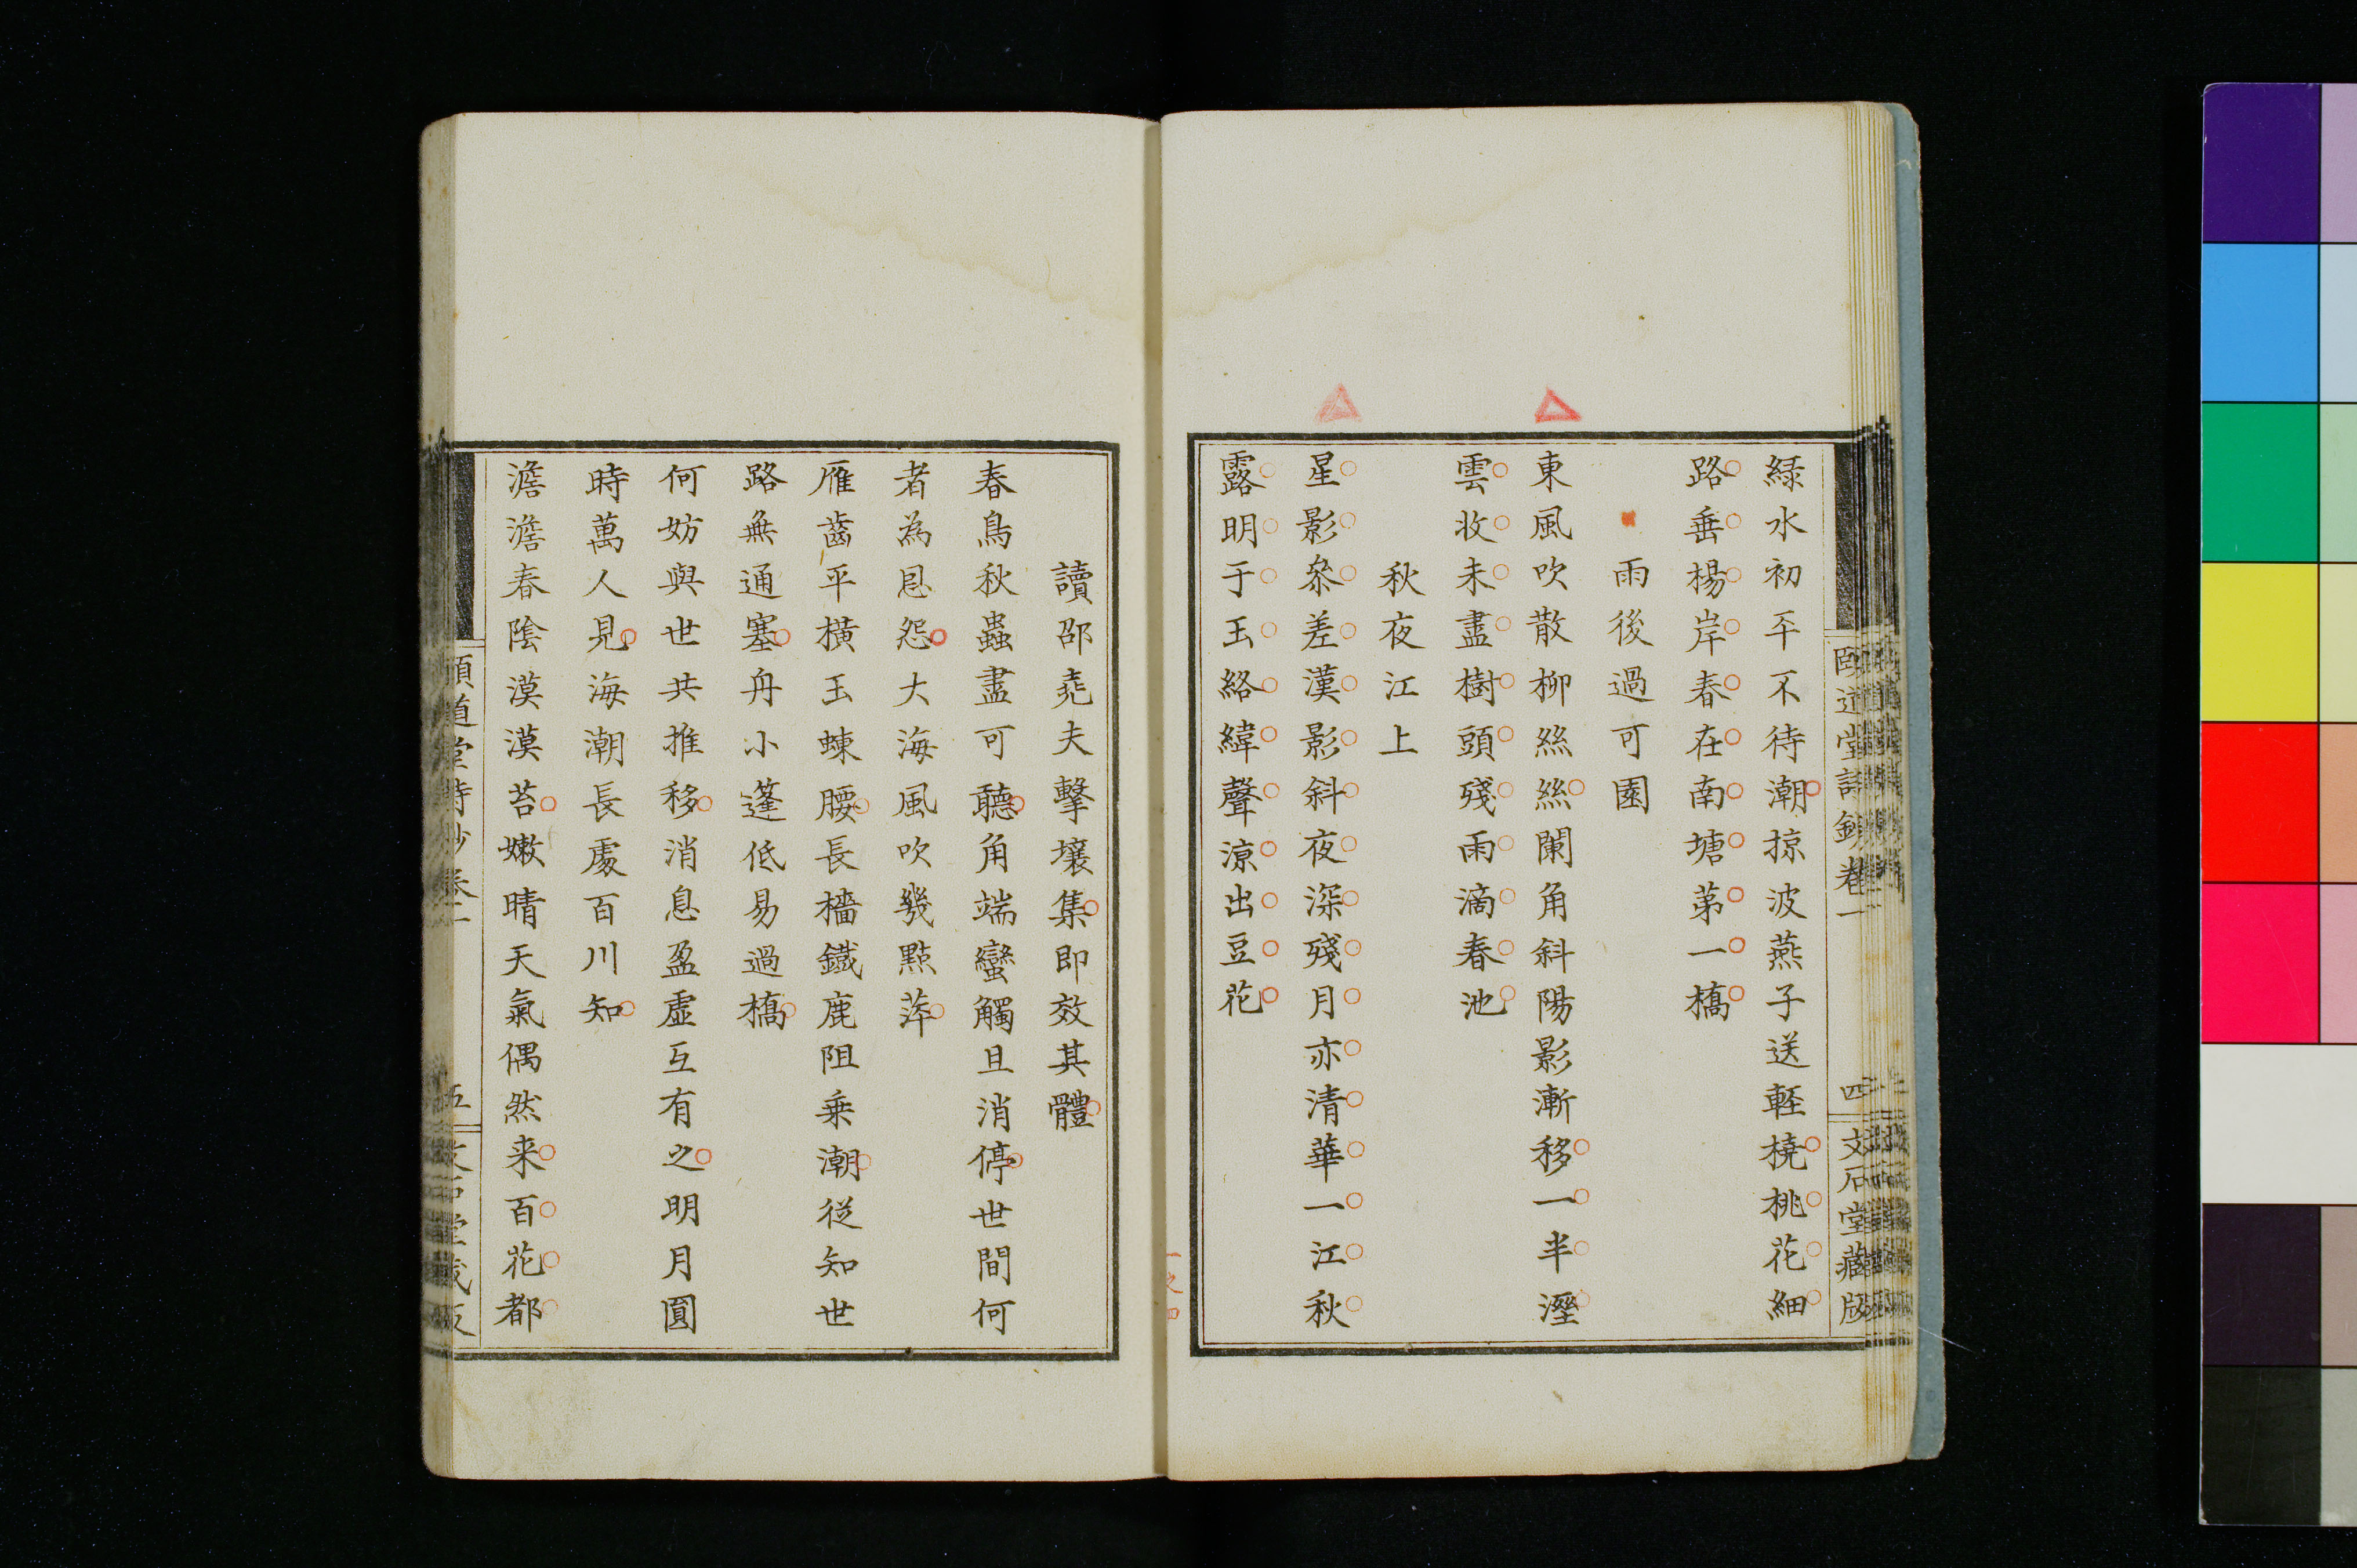 緑水初平不待潮掠波燕子送軽橈桃花細
路垂楊岸春在南塘第一橋
雨後過可園
東風吹散柳絲絲闌角斜陽影漸移一半溼
雲收未盡樹頭殘雨滴春池
秋夜江上
星影叅差漢影斜夜深殘月亦清華一江秋
露明于玉絡緯聲凉出豆花
頤道堂詩鈔卷一
四
文石堂藏版
讀邵堯夫擊壤集即效其體
春鳥秋蟲盡可聽角端蠻觸且消停世間何
者為恩怨大海風吹幾點萍
雁齒平橫玉蝀腰長檣鐵鹿阻乗潮從知世
路無通塞舟小篷低易過橋
何妨與世共推移消息盈虛互有之明月圓
時萬人見海潮長處百川知
澹澹春陰漠漠苔嫩晴天氣偶然来百花都
頤道堂詩鈔卷一
五
文石堂藏版